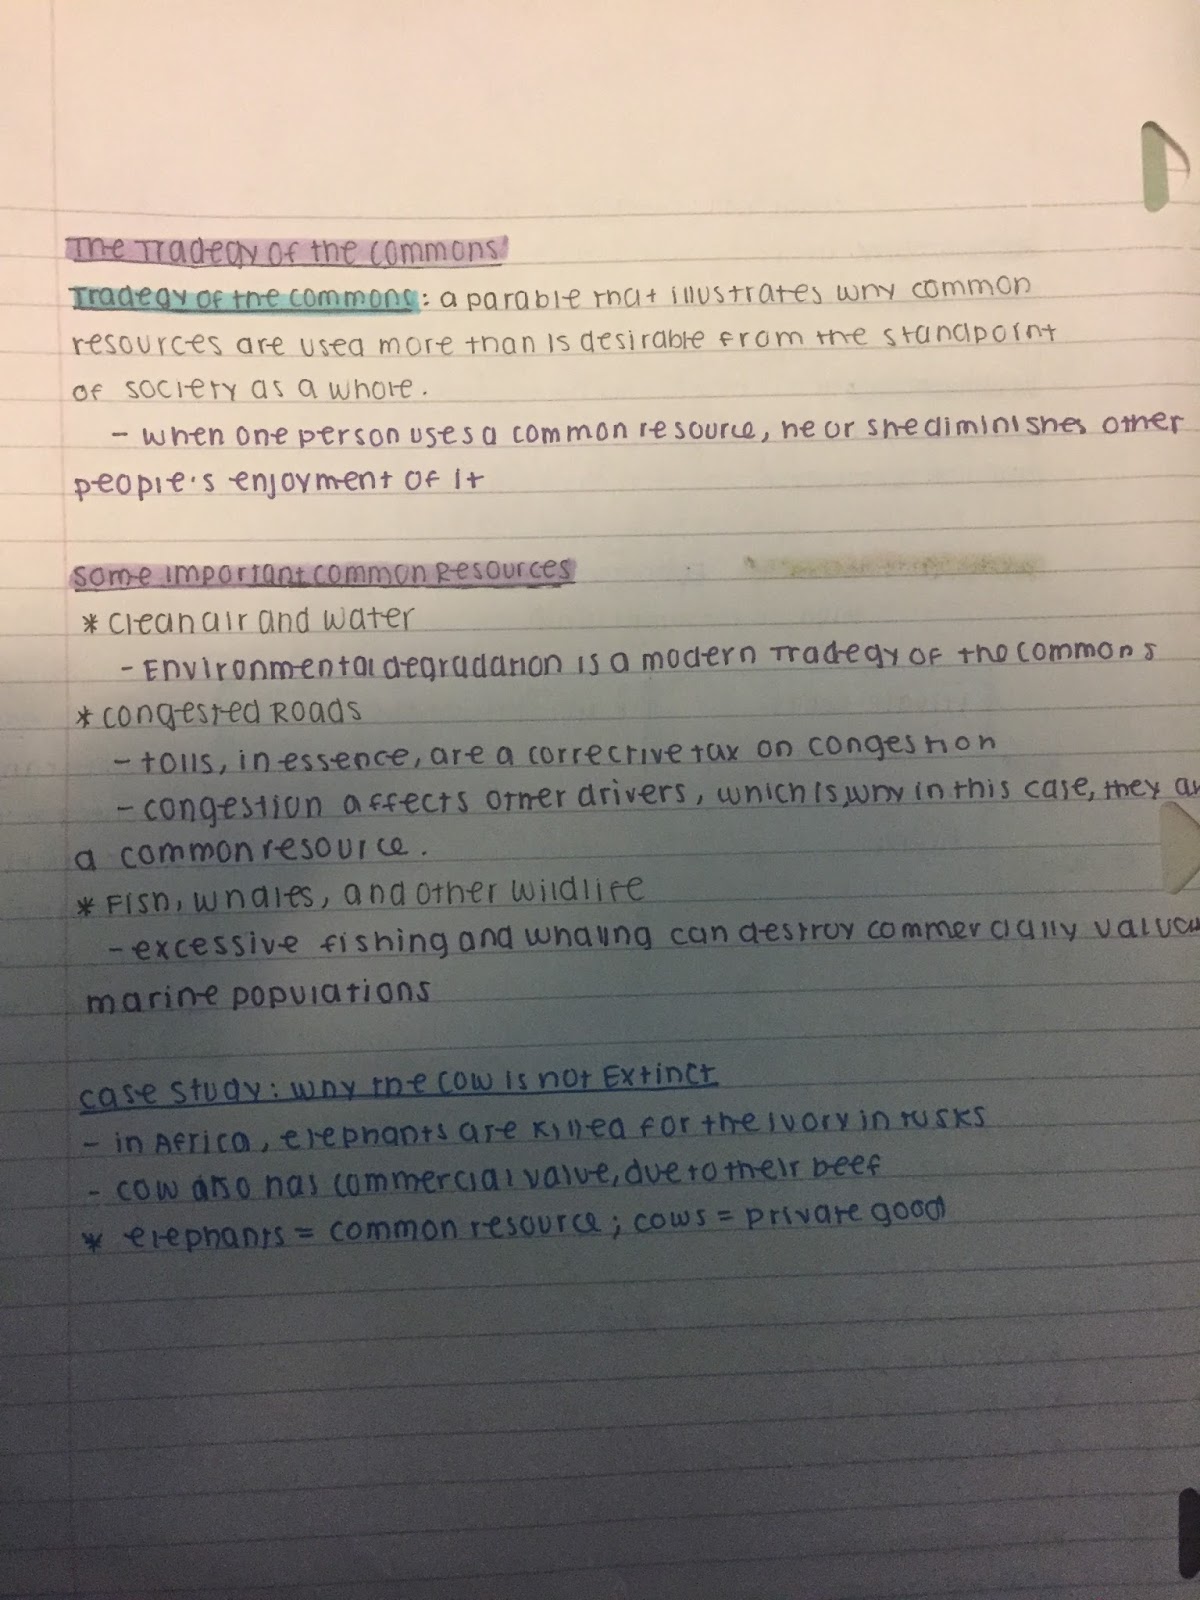 The Tradegy of the Commons
Tradegy of the commons: a parable that illustrates why common
resources are used more than is desirable from the standpoint
of society as a whole.
- when one person uses a common resource, he or she diminishes other
people's enjoyment of it
Some Important Common Resources
* Clean air and water
- Environmental degradation is a modern Tradegy of the commons
* Congested Roads
- tolls, in essence, are a corrective tax on congestion
- congestion affects other drivers, which is why in this case, they
a common resource.
* Fish, whales, and other wildlife
- excessive fishing and whaling can destroy commercially
marine populations
Case Study: why the cow is not Extinct
- in Africa, elephants are killed for the ivory in tusks
- cow also has commercial value, due to their beef
* elephants = common resource; cows = private good